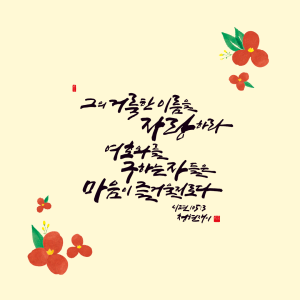 그의 거룩한 이름을
자랑하라
여호와를
구하는 자들은
마음이 즐거울지로다
시편 105:3